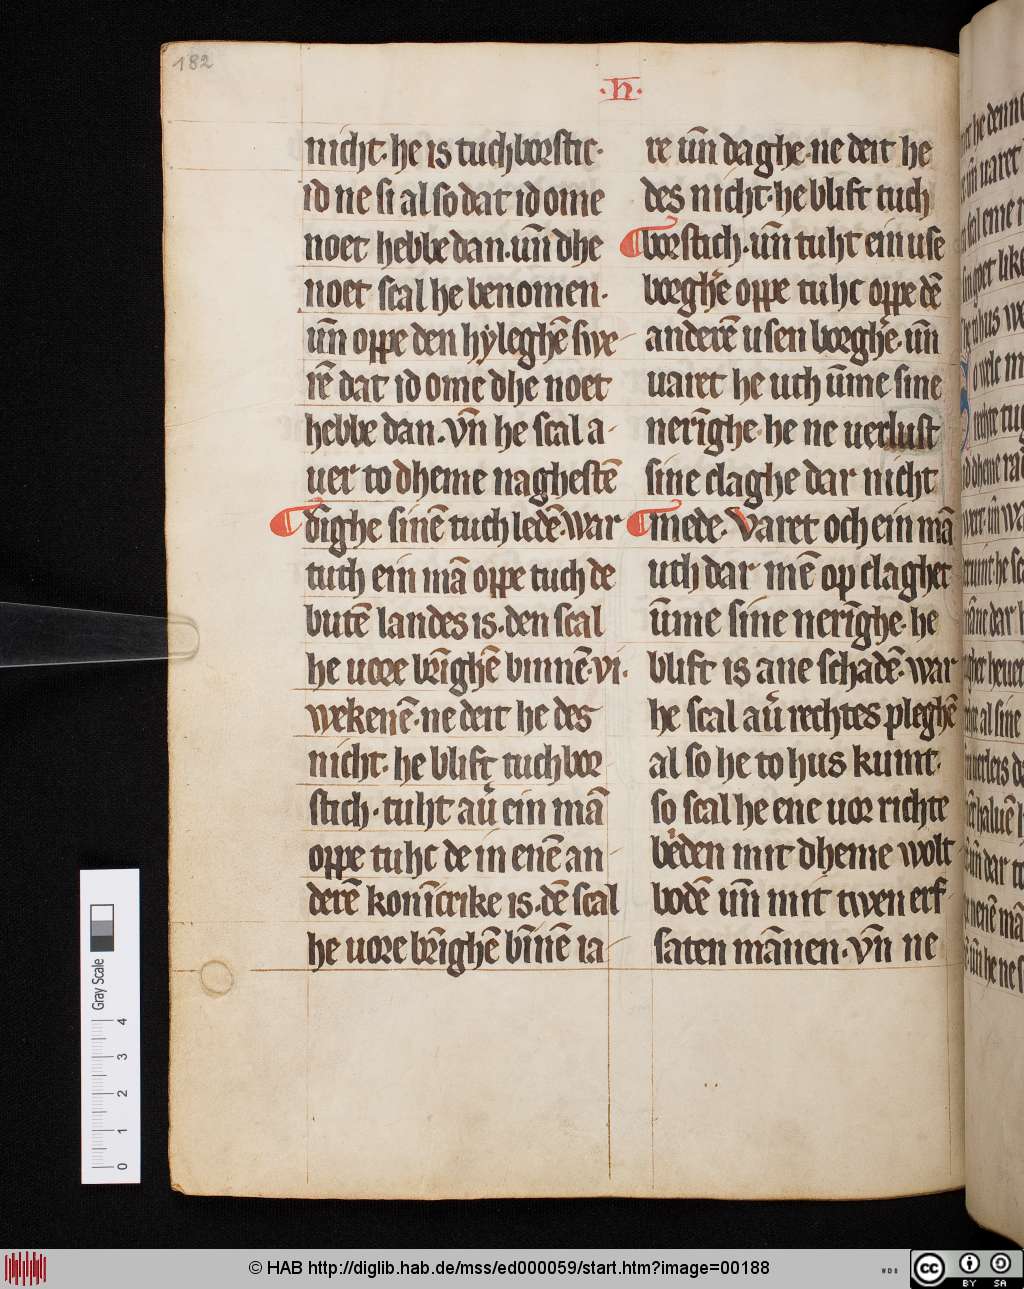 182
·h·
nicht· he is tuchborstic·
id ne si al so dat id ome
noet hebbe dan· uñ dhe
noet scal he benomen·
uñ oppe den hÿleghē swe
rē dat id ome dhe noet
hebbe dan. vn̄ he scal a
uer to dheme naghestē
dīghe sinē tuch ledē· war
tuch ein mā oppe tuch de
butē landes is· den scal
he uore brīghē binnē· vi·
wekenē· ne deit he des
nicht· he blift tuchbor
stich· tuht au̾ ein mā
oppe tuht de in enē an
derē konīcrike is· dē scal
he uore brīghē bīnē ia
re un̄ daghe· ne deit he
des nicht· he blift tuch
borstich· un̄ tuht ein use
borghe̾ oppe tuht oppe dē
anderē usen borghe̾· un̄
uaret he uth ūme sine
nerīghe· he ne uerlust
sine claghe dar nicht
mede· Varet och ein mā
uth dar mē op claghet
ūme sine nerīghe· he
blift is ane schadē· war
he scal au̾ rechtes pleghē
al so he to hus kumt·
so scal he ene uor richte
be̾den mit dheme wolt
bodē un̄ mit twen erf
saten mānen· vn̄ ne
Gray Scale
0 1 2 3 4
© HAB http://diglib.hab.de/mss/ed000059/start.htm?image=00188
WDB
cc BY SA